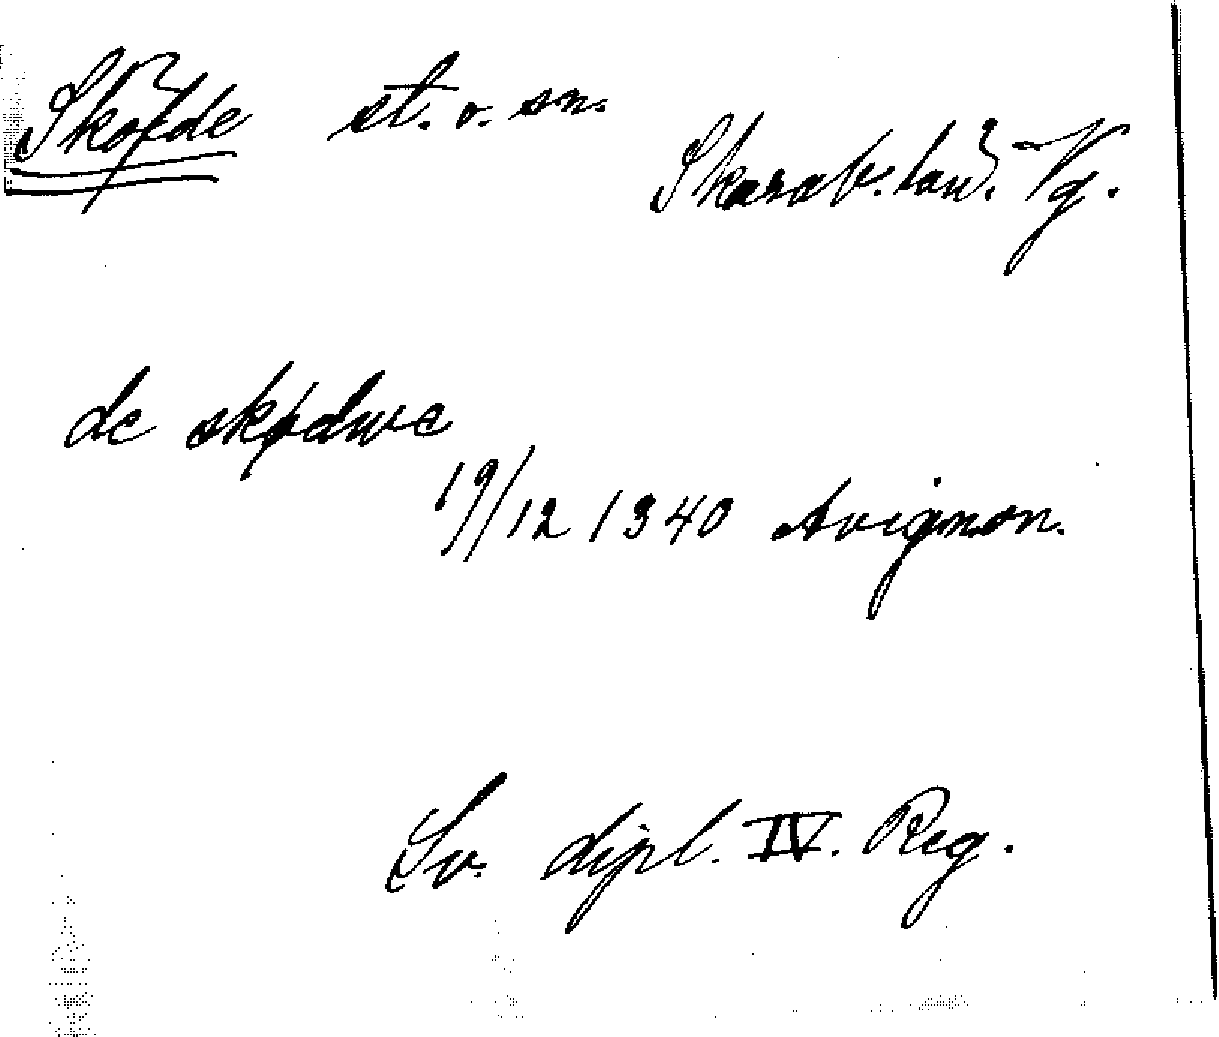 Sköfde st. o. sn.
Skarab. län. Vg.
de skødwe
19/12 1340 Avignon.
Sv. dipl. IV. Reg.